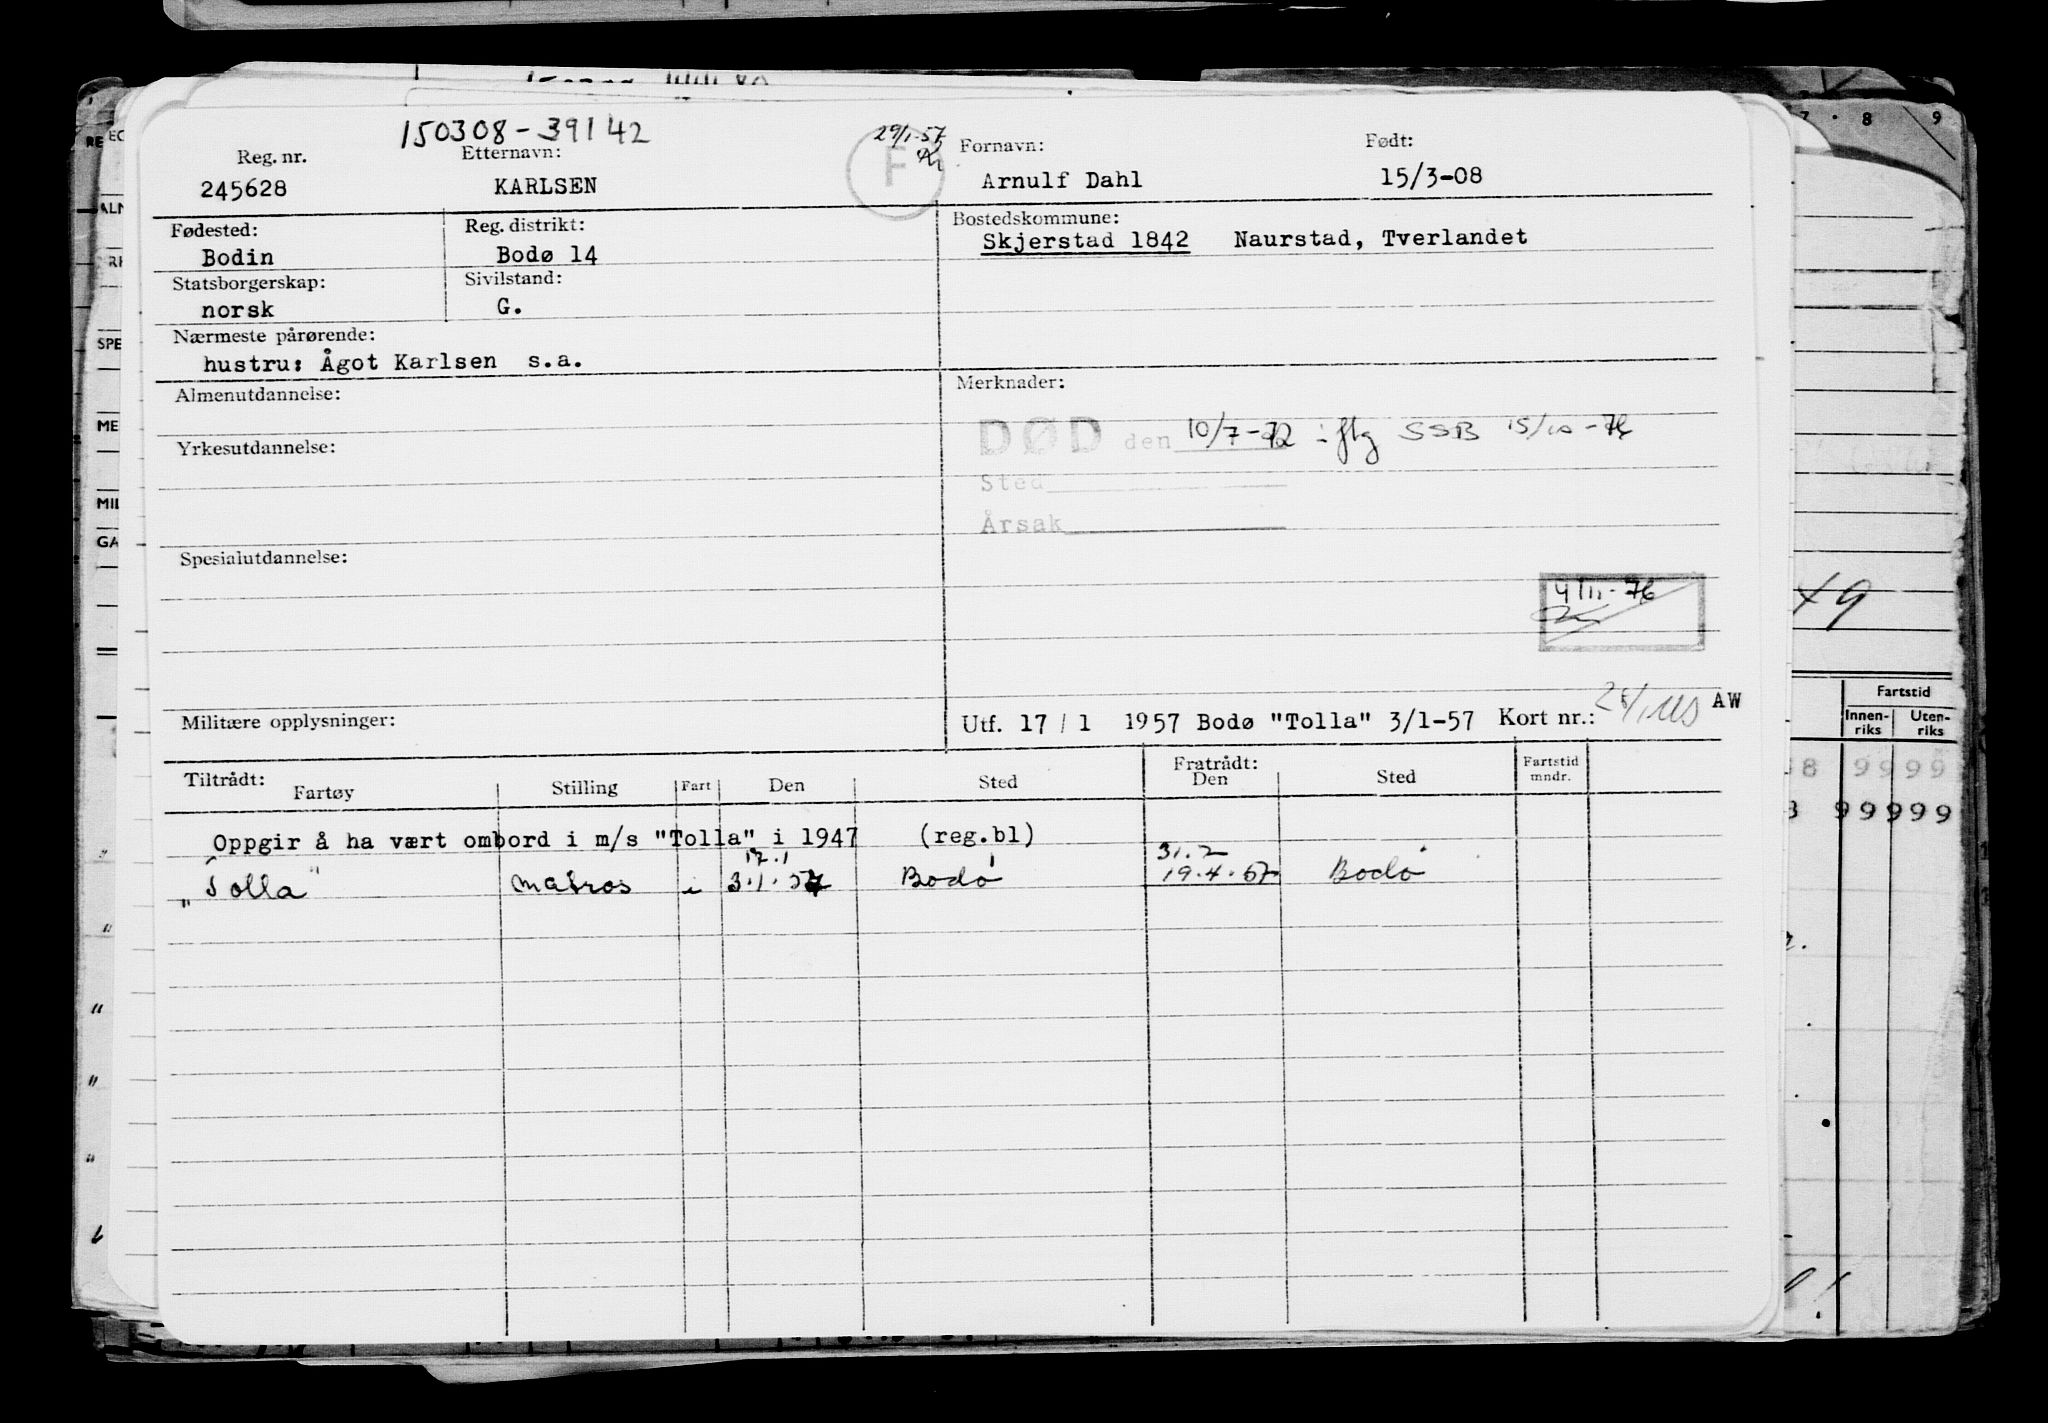 150308-39142
29/1-57
Reg. nr. Etternavn: F Fornavn: Født:
245628 KARLSEN Arnulf Dahl 15/3-08
Fødested: Reg. distrikt: Bostedskommune:
Bodin Bodø 14 Skjerstad 1842 Naurstad, Tverlandet
Statsborgerskap: Sivilstand:
norsk G.
Nærmeste pårørende:
hustru: Ågot Karlsen s.a.
Almenutdannelse: Merknader:
DØD den 10/7-72 iflg SSB 15/10-76
Yrkesutdannelse:
Sted
Årsak
Spesialutdannelse:
4/11-76
Militære opplysninger: Utf. 17/1 1957 Bodø "Tolla" 3/1-57 Kort nr.: AW
Tiltrådt: Fratrådt:
Fartøy Stilling Fart Den Sted Den Sted Fartstid mndr.
Oppgir å ha vært ombord i m/s "Tolla" i 1947 (reg.bl)
17.1 31.2
"Tolla" matros i 3.1.57 Bodø 19.4.57 Bodø
Fartstid
Innen-riks Uten-riks
9999
99999